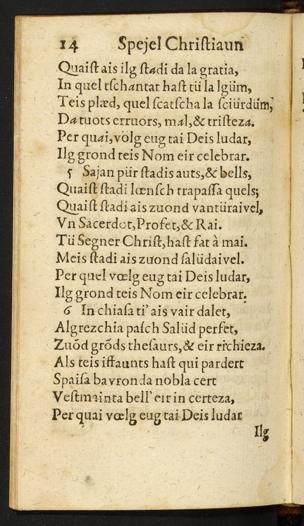 14 Spejel Christiaun
Quaist ais ilg stadi da la gratia,
In quel tschantar hast tü la lgüm,
Teis plæd, quel scatscha la sciürdüm,
Da tuots erruors, mal, & tristeza.
Per quai, völg eug tai Deis ludar,
Ilg grond teis Nom eir celebrar.
5 Sajan pür stadis auts, & bells,
Quaist stadi lœnsch trapassa quels;
Quaist stadi ais zuond vantüraivel,
Vn Sacerdot, Profet, & Rai.
Tü Segner Christ, hast fat à mai.
Meis stadi ais zuond salüdaivel.
Per quel vœlg eug tai Deis ludar,
Ilg grond teis Nom eir celebrar.
6 In chiasa ti' ais vair dalet,
Algrezchia pasch Salüd perfet,
Zuõd grõds thesaurs, & eir richieza.
Als teis iffaunts hast qui pardert
Spaisa bavronda nobla cert
Vestmainta bell' eir in certeza,
Per quai vœlg eug tai Deis ludar
Ilg